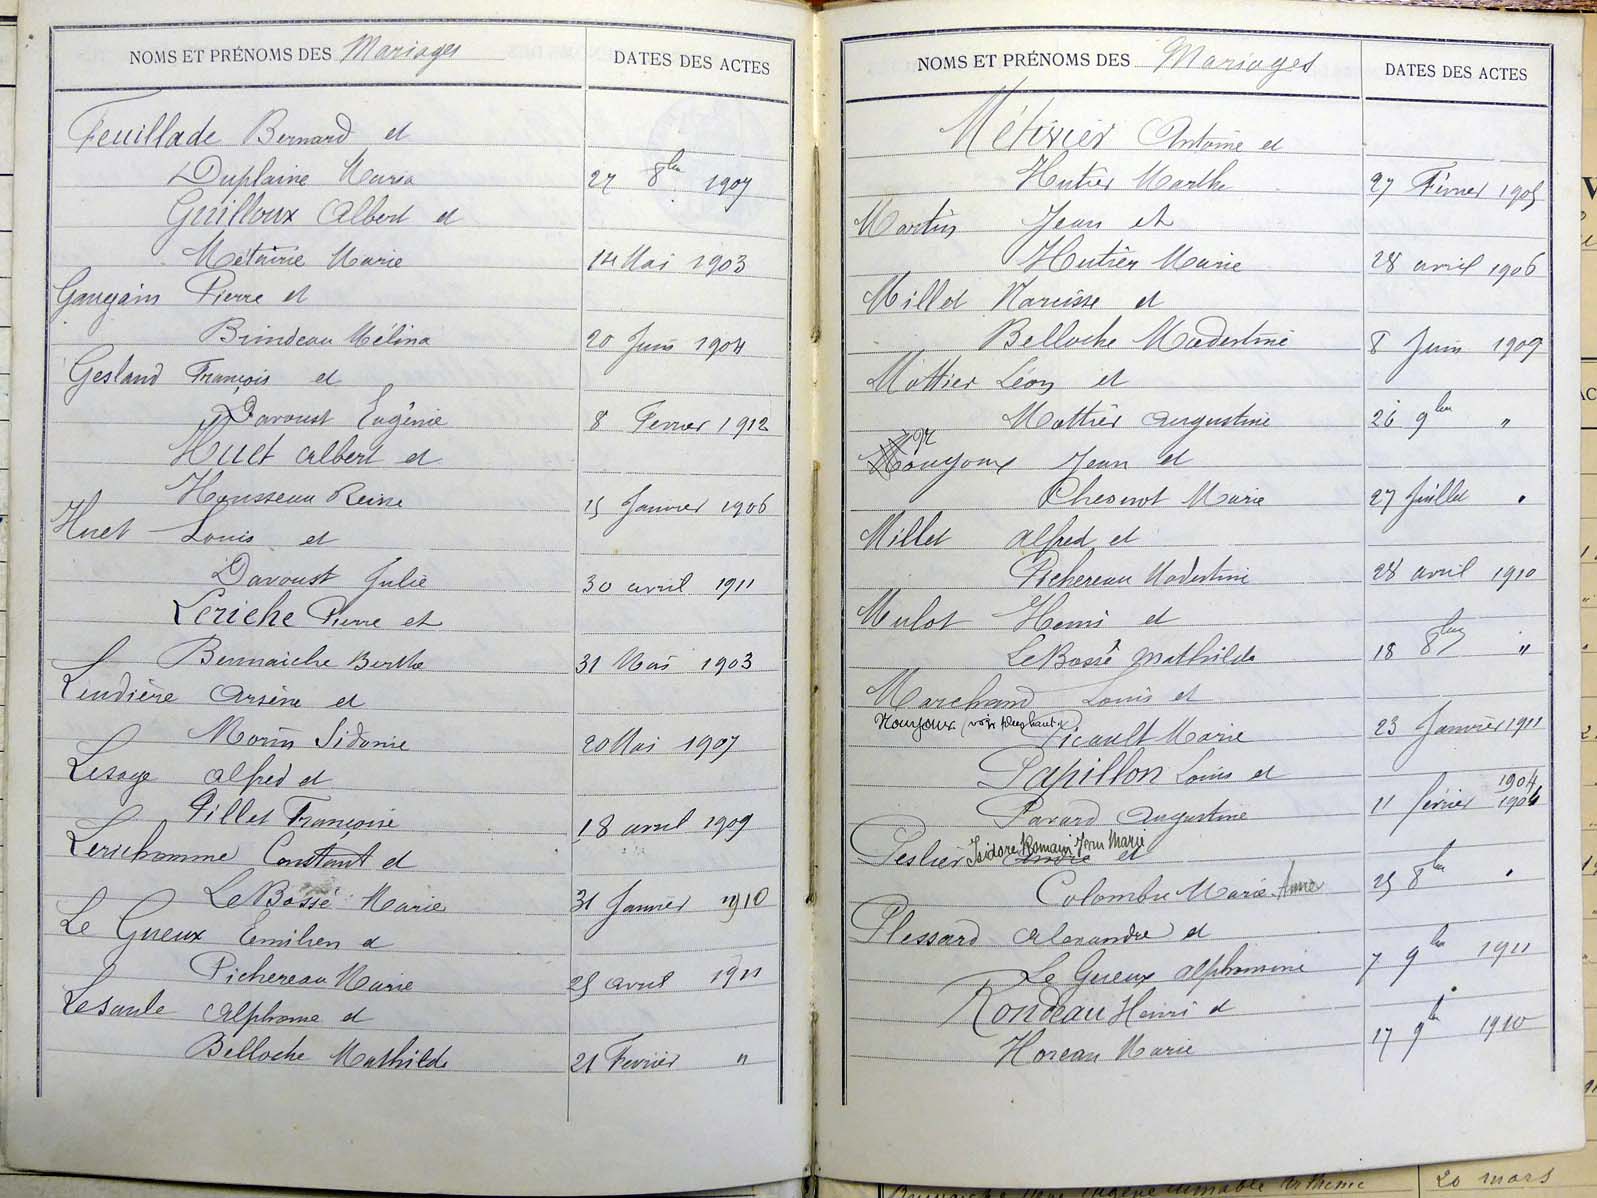 NOMS ET PRÉNOMS DES Mariages DATES DES ACTES
Feuillade Bernard et
Duplaine Maria 27 8bre 1907
Guilloux Albert et
Métairie Marie 14 Mai 1903
Gaugain Pierre et
Brindeau Mélina 20 Juin 1904
Gesland François et
Davoust Eugénie 8 Fevrier 1912
Huet Albert et
Housseau Reine 15 Janvier 1906
Huet Louis et
Davoust Julie 30 avril 1911
Leriche Pierre et
Bennaiche Berthe 31 Mai 1903
Lindière Arsène et
Morin Sidonie 20 Mai 1907
Lesage Alfred et
Pillet Françoise 18 avril 1909
Lerichomme Constant et
Le Bossé Marie 31 Janvier 1910
Le Gueux Emilien et
Pichereau Marie 25 avril 1911
Lesaule Alphonse et
Belloche Mathilde 21 Fevrier "
NOMS ET PRÉNOMS DES Mariages DATES DES ACTES
Métivier Antoine et
Hutier Marthe 27 Février 1905
Martin Jean et
Hutier Marie 28 avril 1906
Millet Narcisse et
Belloche Modestine 8 Juin 1909
Mottier Léon et
Mottier Augustine 26 9bre "
Noujoux Jean et
Chesnot Marie 27 Juillet "
Millet Alfred et
Pichereau Modestine 28 avril 1910
Mulot Henri et
Le Bossé Mathilde 18 8bre "
Marchand Louis et
Noujoux (voir plus haut)
Picault Marie 23 Janvier 1911
Papillon Louis et
1904
Pavard Augustine 11 février 1904
Isidore Romain Jean Marie
Peslier André et
Colombu Marie Anne 25 8bre "
Plessard Alexandre et
Le Gueux Alphonsine 7 9bre 1911
Rondeau Henri et
Horeau Marie 17 9bre 1910
20 mars